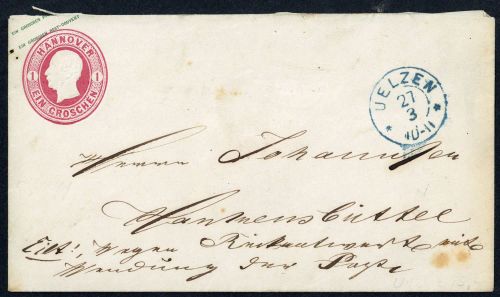 EIN GROSCHEN POST-COUVERT
EIN GROSCHEN POST-COUVERT
HANNOVER
1 1
EIN GROSCHEN
UELZEN
27
3
10-11
Herrn Johannsen
Hankensbüttel
Eilt!, wegen Rückantwort mit
Wendung der Post